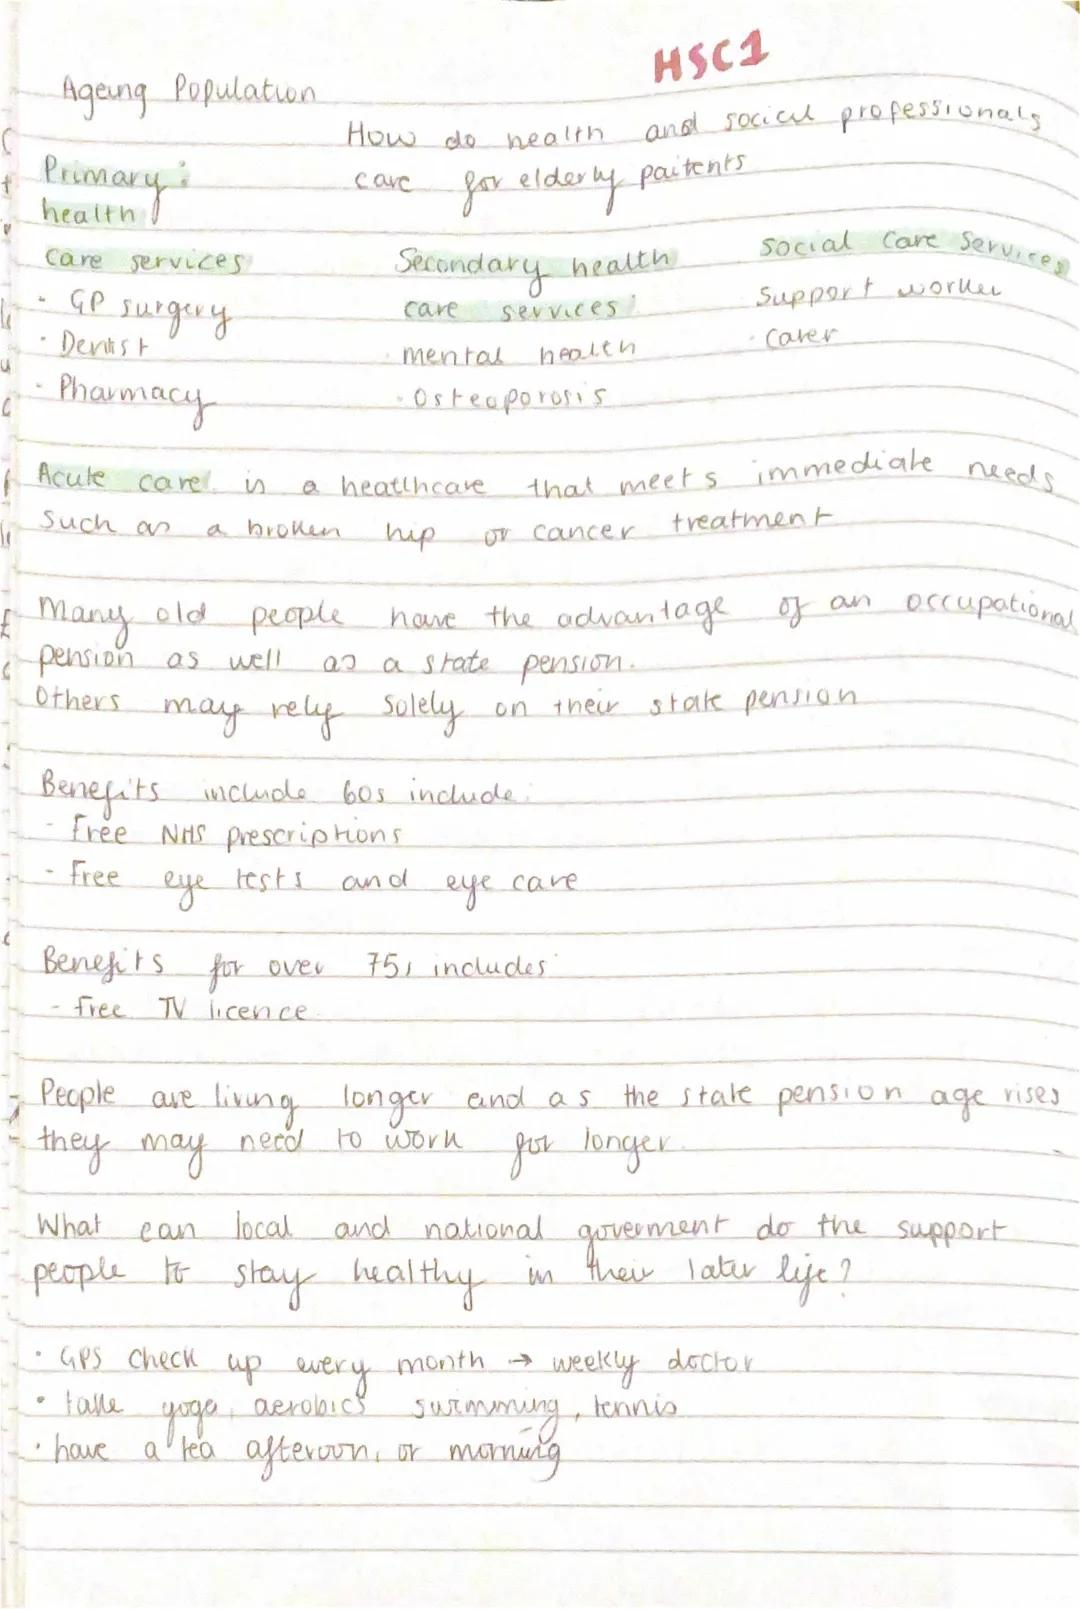 HSC1
Ageing Population
How do health and social professionals
care for elderly paitents
Primary :
health
care services
· GP surgery
· Dentist
· Pharmacy
Secondary health
care services
· mental health
· Osteoporosis
Social Care Services
Support worker
· Carer
Acute care is a healthcare that meets immediate needs
Such as a broken hip or cancer treatment
Many old people have the advantage of an occupational
pension as well as a state pension.
Others may rely Solely on their state pension
Benefits include 60s include:
- Free NHS prescriptions
- Free eye tests and eye care
Benefits for over 75s includes
- free TV licence
People are living longer and as the state pension age rises
they may need to work for longer.
What can local and national goverment do the support
people to stay healthy in their later life?
· GPS Check up every month → weekly doctor
· take yoga, aerobics swimming, tennis
· have a tea afteroon, or morning